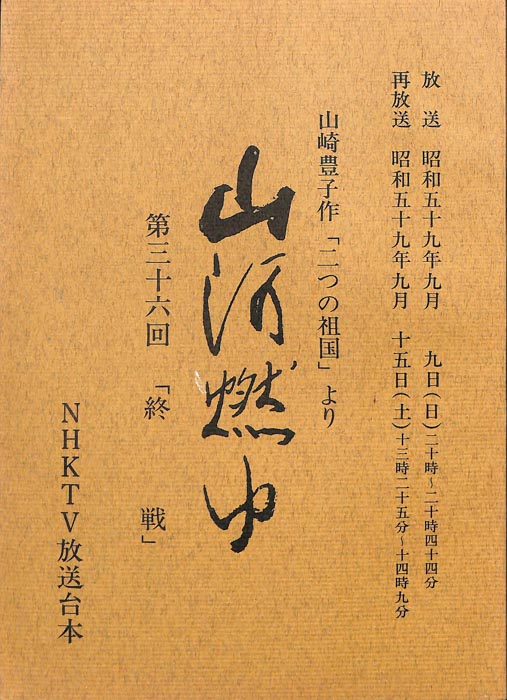 放送 昭和五十九年九月 九日(日)二十時~二十時四十四分
再放送 昭和五十九年九月 十五日(土)十三時二十五分~十四時九分
山崎豊子作「二つの祖国」より
山河燃ゆ
第三十六回 「終戦」
NHKTV放送台本